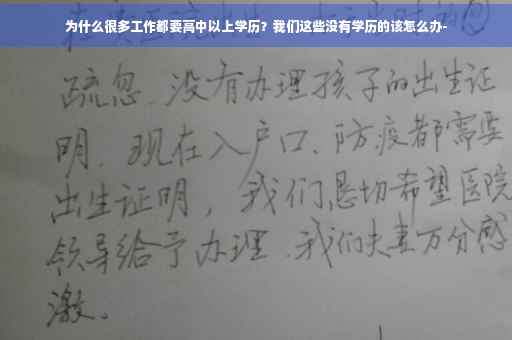 为什么很多工作都要高中以上学历？我们这些没有学历的该怎么办-
疏忽、没有办理孩子的出生证
明、现在入户口、防疫都需要
出生证明，我们恳切希望医院
领导给予办理、我们夫妻万分感
激。